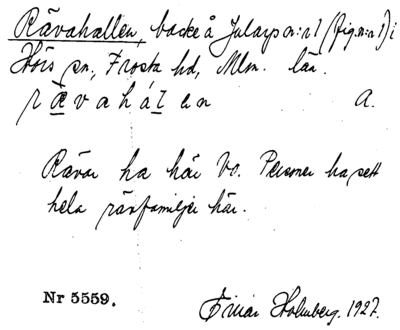 Rävahallen, backe å Julaps n:r 1 (fig. n:r 1) i
Hörs sn, Frosta hd, Mlm. län.
rävahálen a.
Rävar ha här bo. Personer ha sett
hela rävfamiljer här.
Nr 5559. Einar Holmberg. 1927.